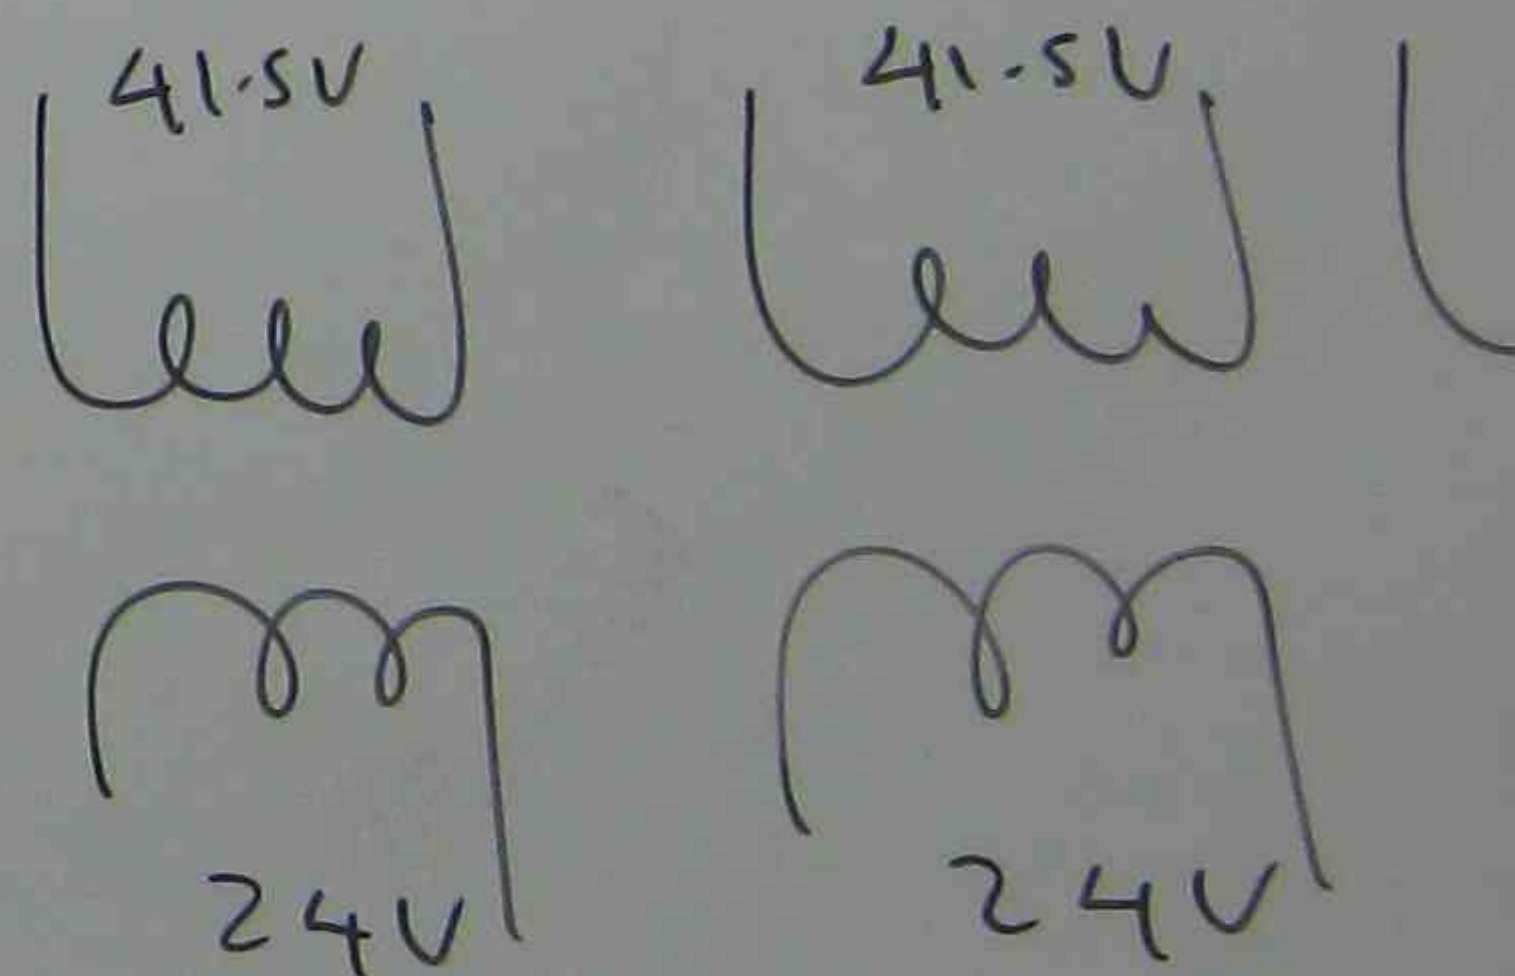 41.5V 41.5V
24V 24V